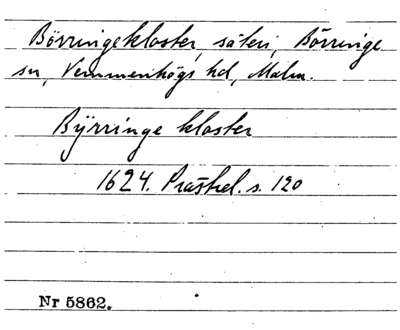 Börringekloster, säteri, Börringe
sn, Vemmenhögs hd, Malm.
Bÿrringe kloster
1624. Prästrel. s. 120
Nr 5862.